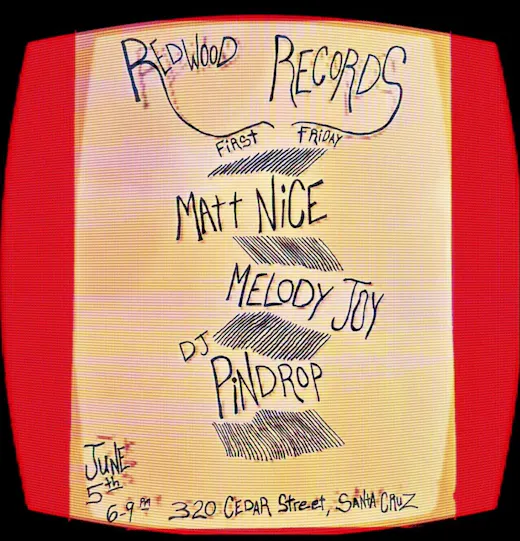 REDWOOD RECORDS
FiRST FRiDAY
MAtt NiCE
MELODY JOY
DJ PiNDROP
JUNE
5th
6-9 PM
320 CEDAR Street, SANTA CRUZ